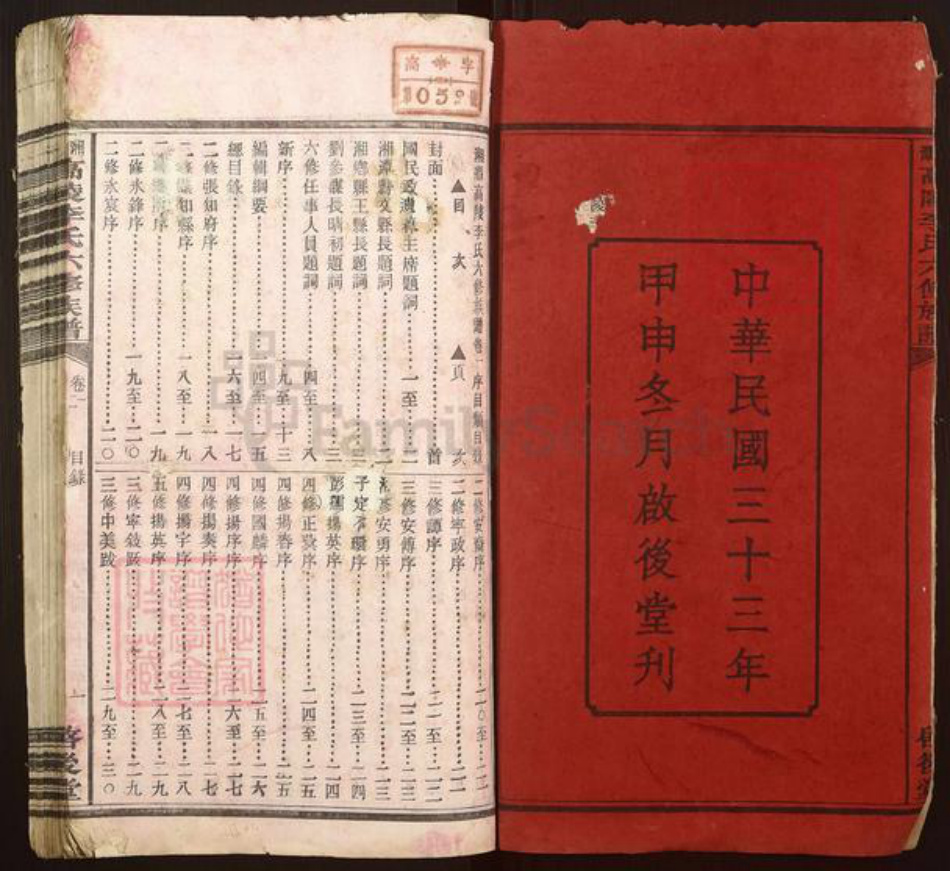 中華民國三十三年
甲申冬月啟後堂刊
高 字
059
湘鄉高陵李氏六修族譜卷一序目
▲目次 ▲頁次
封面 首
國民政府林主席題詞 一至二
湘鄉縣王縣長題詞
劉參謀長晴初題詞 三
六修任事人員題詞 四至八
新序 九至十三
編輯綱要 四至五
總目錄 六至七
二修張知府序 一八
知縣序 一八至一九
序 一九
二修永鋒序 一九至二〇
二修永宸序 二〇
二修寧政序 二一
三修譚序 二一至二二
三修安傅序 二二至二三
安勇序 二三
子定序 二三至二四
揚英序 二四
四修正序 二四至二五
四修揚春序 二五
四修國麟序 二五至二六
四修揚序序 二六至二七
四修揚奏序 二七
四修揚宇序 二七至二八
五修揚英序 二八至二九
三修寧敍跋 二九
三修中美跋 二九至三〇
湘高陵李氏六修族譜
卷一
目錄
啓後堂
FamilySearch